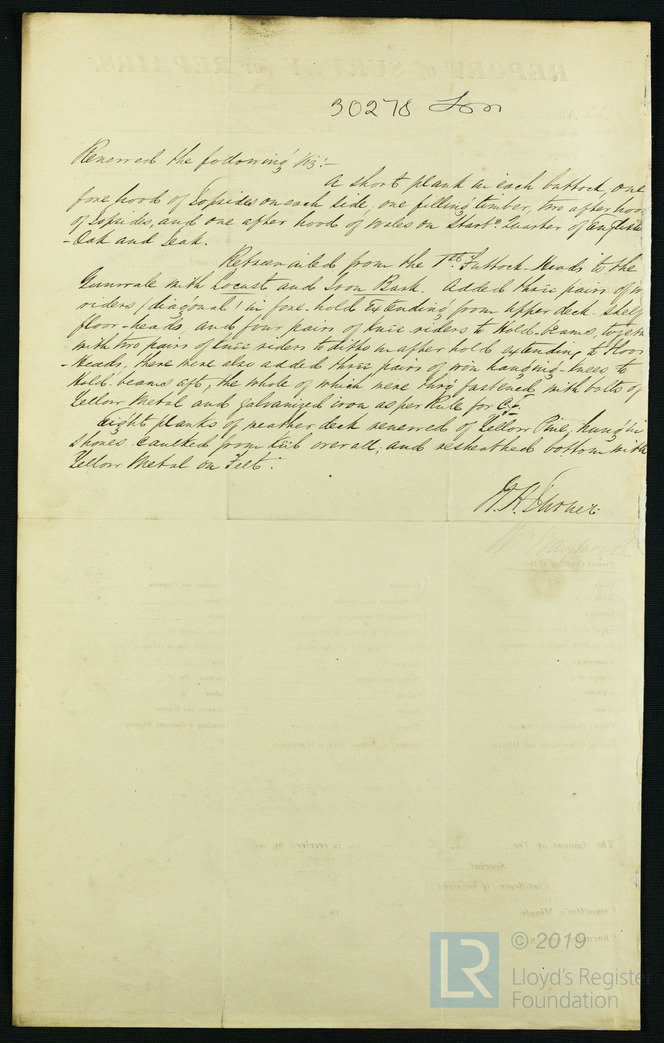 30278 Lon
Renewed the following Viz:-
A short plank in each buttock, one
fore hood of Topsides on each side, one filling timber, two after hood
of Topsides, and one after hood of Wales on Starbd. Quarter of English
-Oak and Teak.
Retreenailed from the 1st. Futtock-Heads to the
Gunwale with Locust and Iron Bark. Added three pairs of
riders (diagonal) in fore-hold extending from upper deck shelf
floor-heads, and four pairs of knee riders to Hold-beams, togeth
with two pairs of knee riders to ditto in after hold extending to Floor
-Heads, there were also added three pairs of iron hanging-knees to
Hold beams aft, the whole of which were thro' fastened with bolts of
Yellow Metal and galvanized iron as per Rule for
Eight planks of weather deck renewed of Yellow Pine, hung in
Shores caulked from Keel overall, and resheathed bottom with
Yellow Metal on Felt.
REPORT of SURVEY for REPAIRS.
The Amount of Fee
is received by
Special
Certificate
Committee's Minute
18
© 2019
LR
Lloyd's Register
Foundation